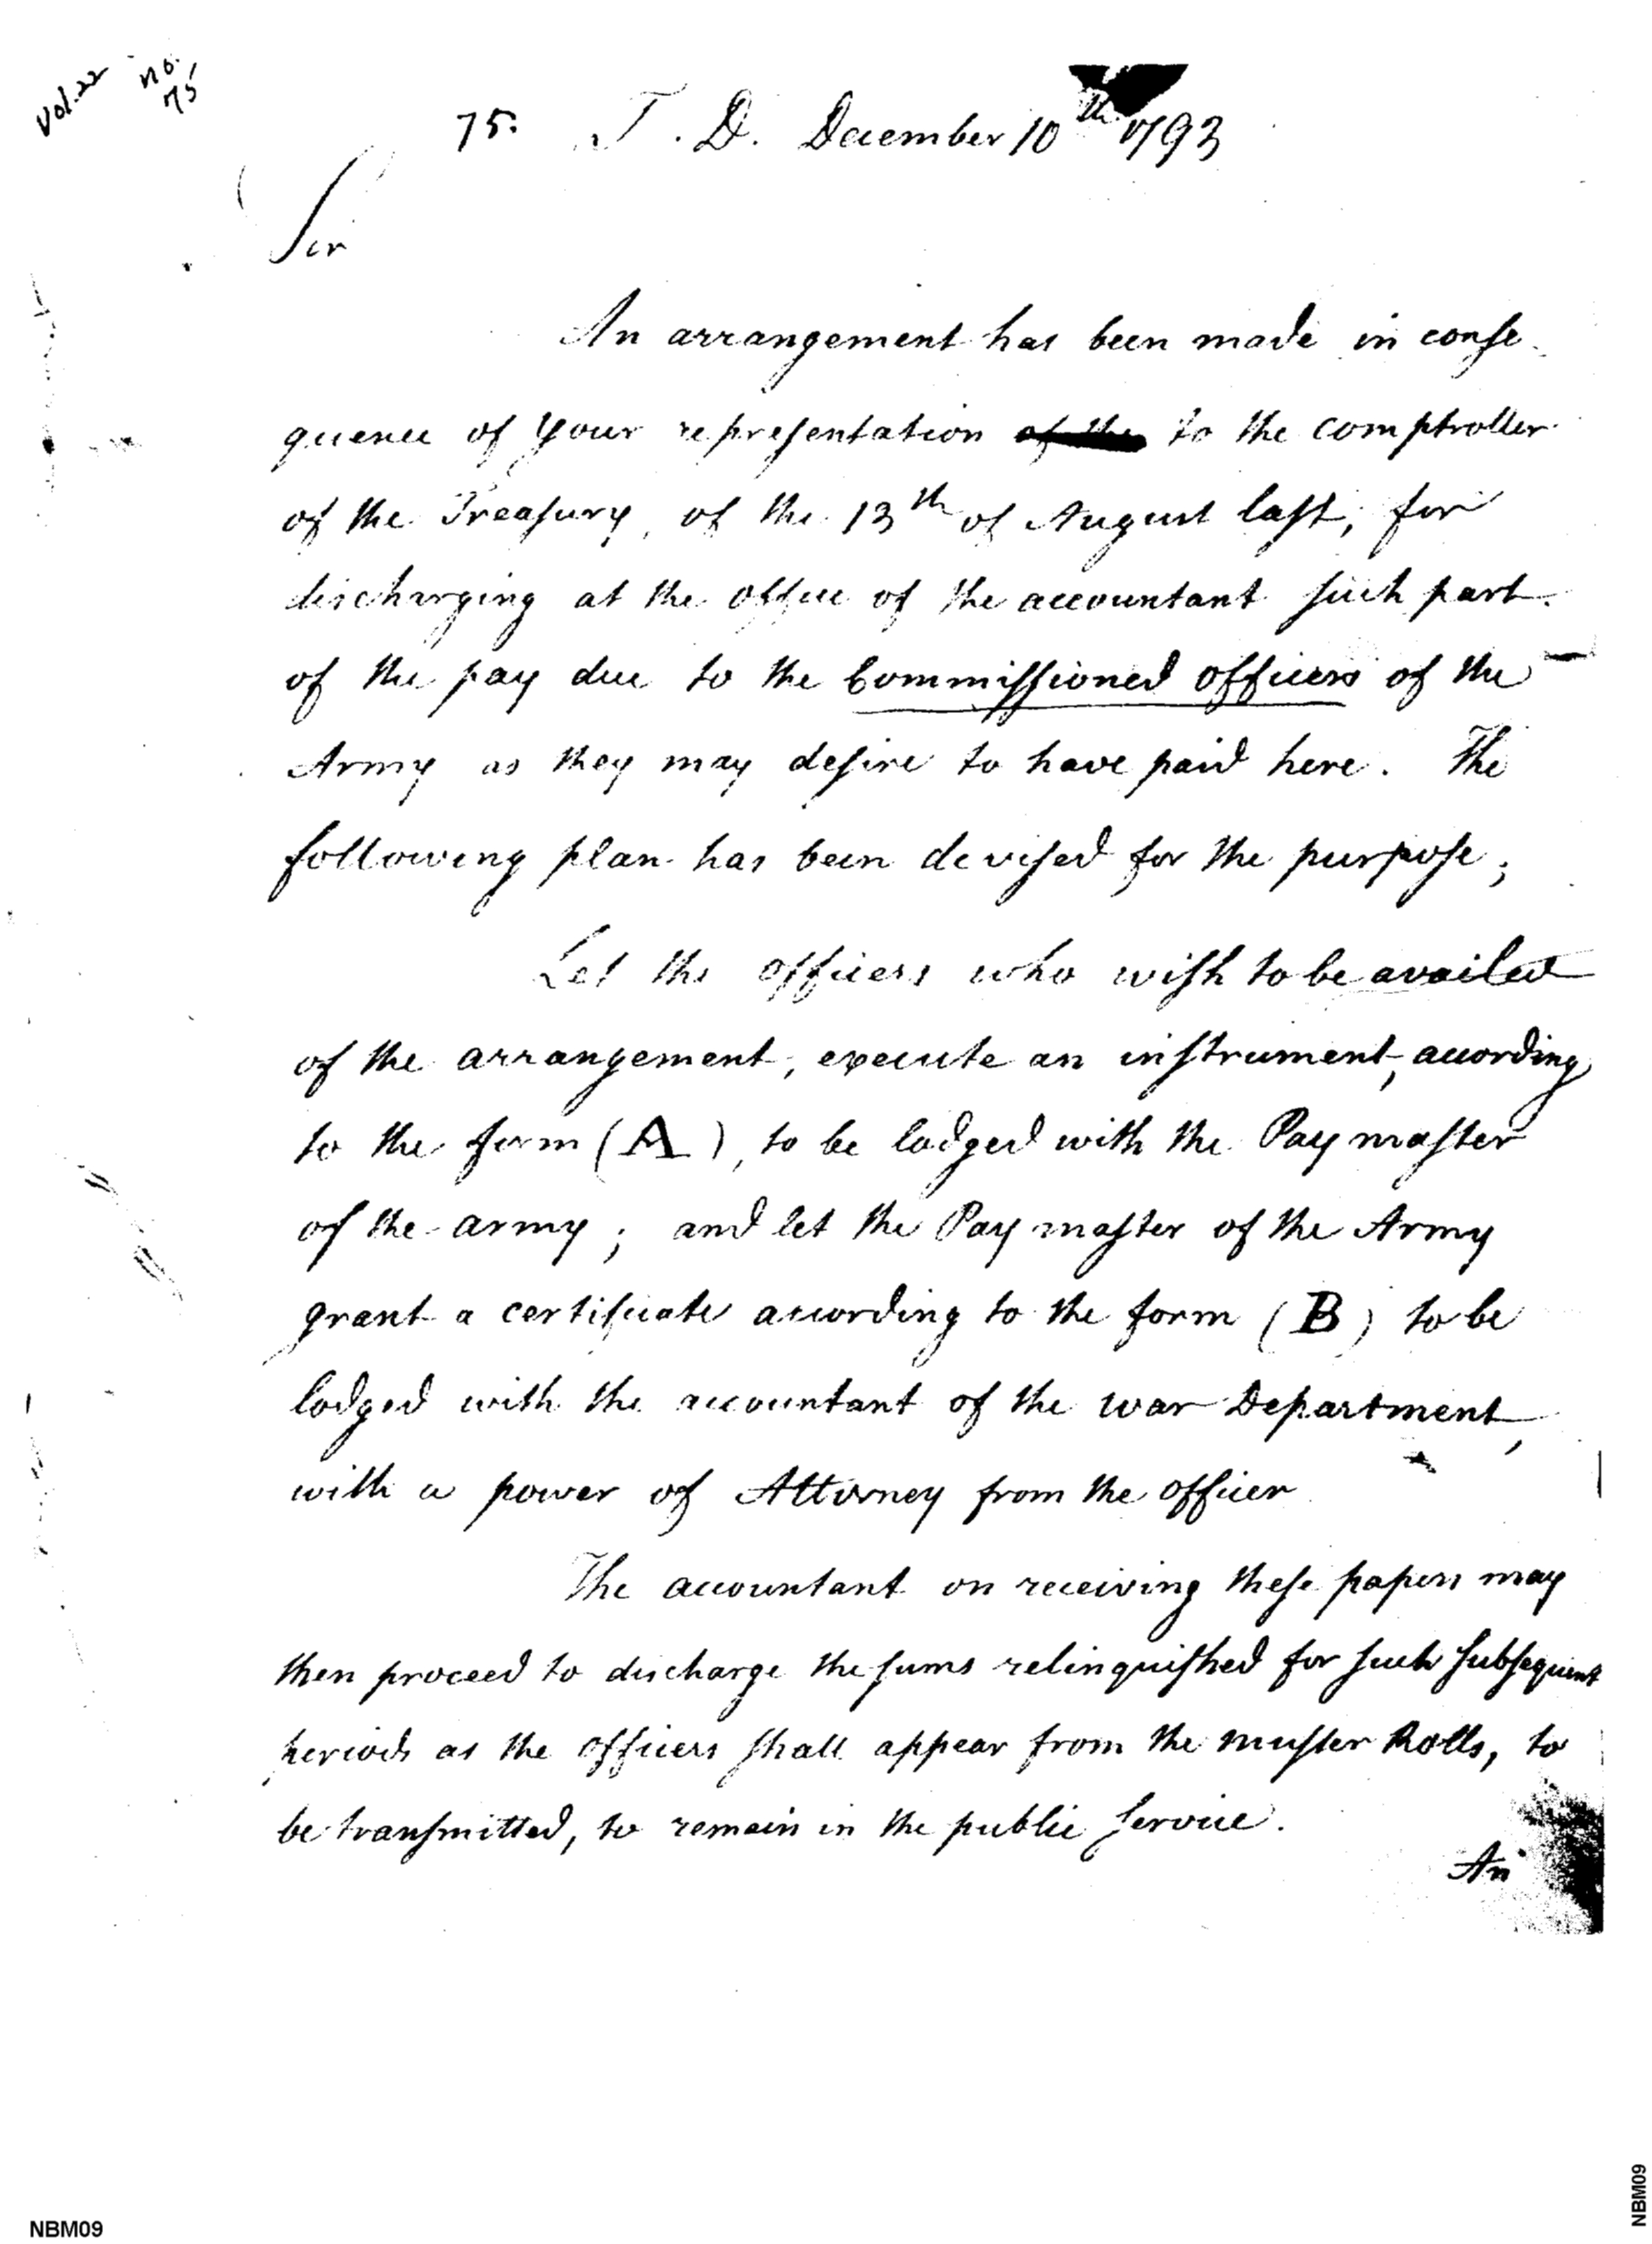 Vol. 22 no. 75
75. T. D. December 10th 1793
Sir
An arrangement has been made in conse
quence of your representation of the to the comptroller
of the Treasury, of the 13th of August last, for
discharging at the office of the accountant such part
of the pay due to the Commissioned officers of the
Army as they may desire to have paid here. The
following plan has been devised for the purpose;
Let the officers who wish to be availed
of the arrangement, execute an instrument, according
to the form (A), to be lodged with the Paymaster
of the army; and let the Paymaster of the Army
grant a certificate according to the form (B) to be
lodged with the accountant of the war Department,
with a power of Attorney from the officer
The accountant on receiving these papers may
then proceed to discharge the sums relinquished for such subsequent
periods as the officers shall appear from the muster Rolls, to
be transmitted, to remain in the public service.
An
NBM09
NBM09